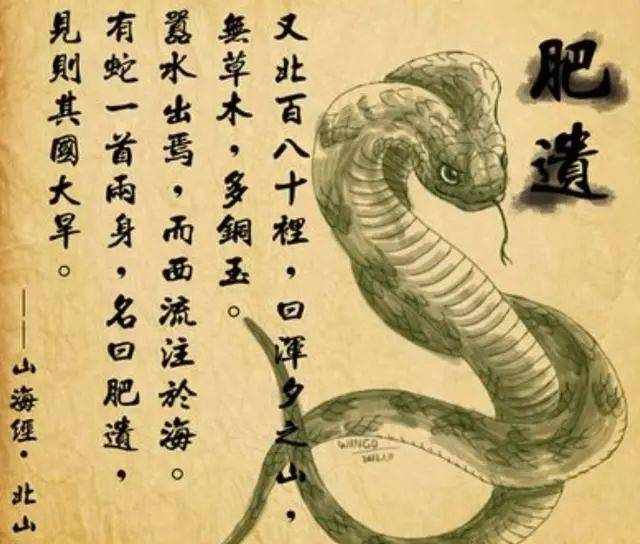 肥遺
又北百八十裡，曰渾夕之山，
無草木，多銅玉。
囂水出焉，而西流注於海。
有蛇一首兩身，名曰肥遺，
見則其國大旱。
——山海經·北山
WINGO